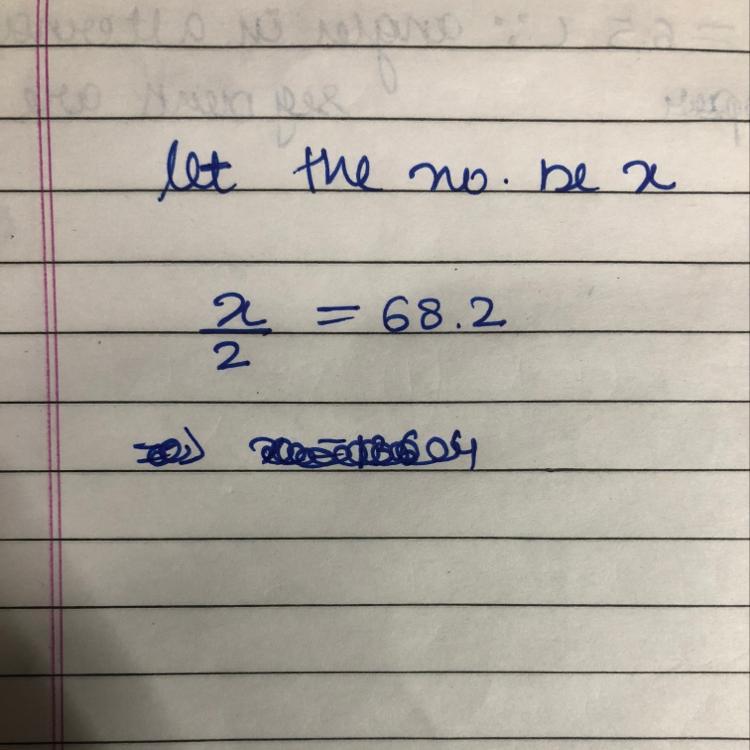 let the no. be x
x/2 = 68.2